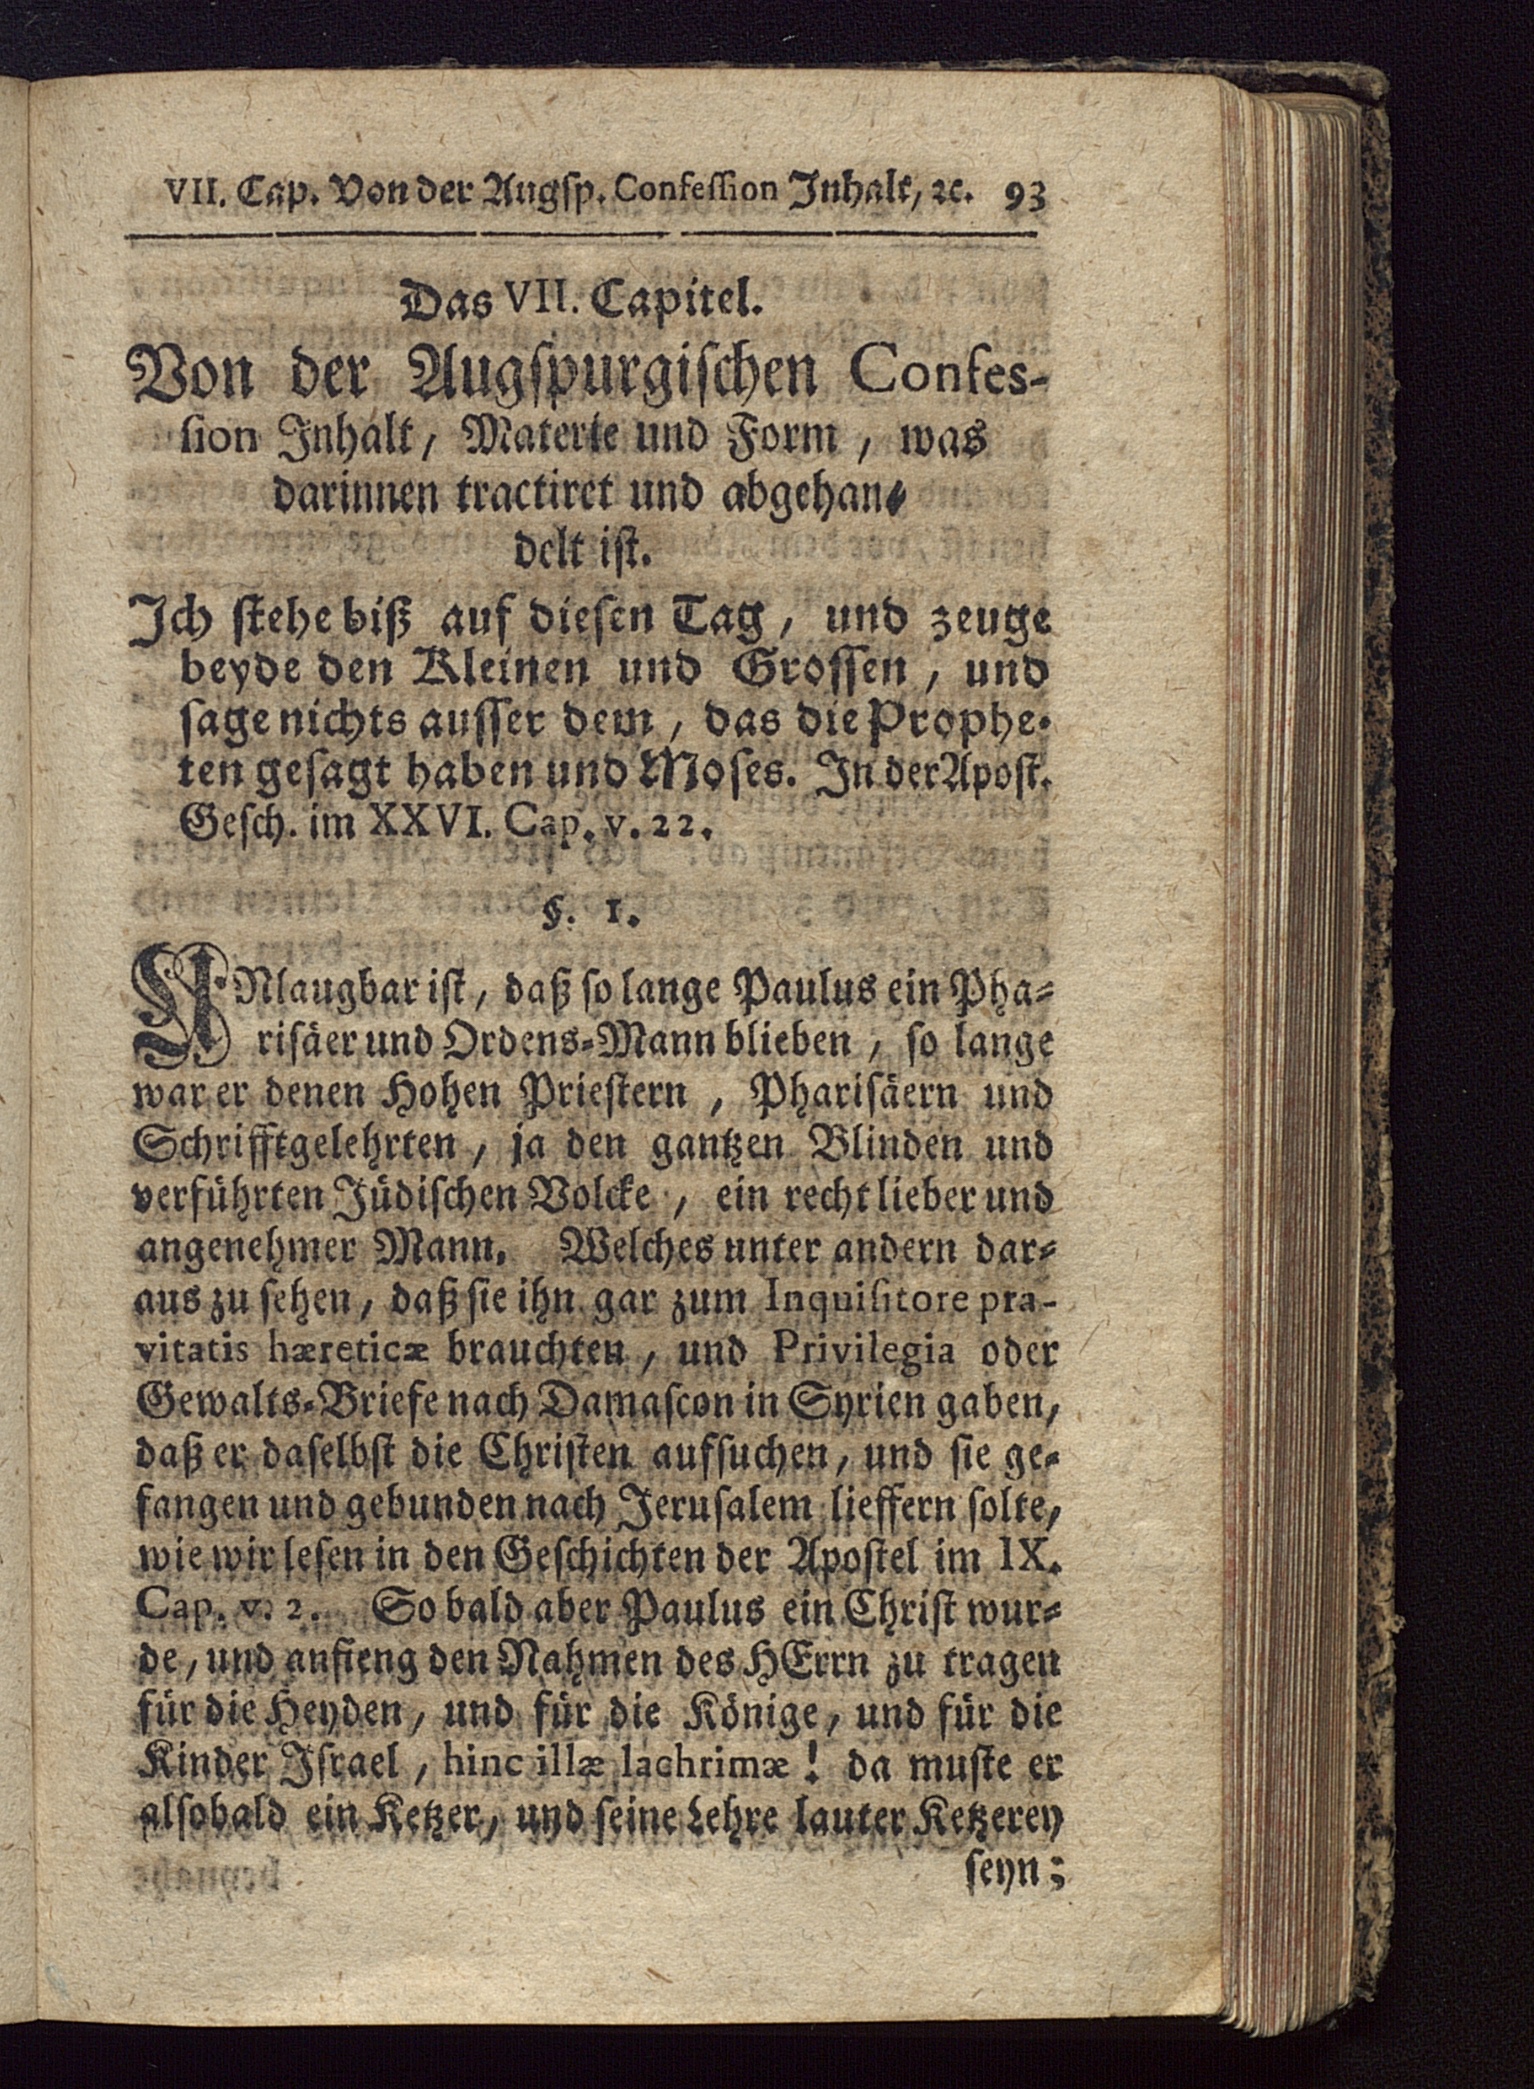 VII. Cap. Von der Augsp. Confession Inhalt, ꝛc. 93
Das VII. Capitel.
Von der Augspurgischen Confes-
sion Inhalt, Materie und Form, was
darinnen tractiret und abgehan-
delt ist.
Ich stehe biß auf diesen Tag, und zeuge
beyde den Kleinen und Grossen, und
sage nichts ausser dem, das die Prophe-
ten gesagt haben und Moses. In der Apost.
Gesch. im XXVI. Cap. v. 22.
§. 1.
UNlaugbar ist, daß so lange Paulus ein Pha-
risäer und Ordens-Mann blieben, so lange
war er denen Hohen Priestern, Pharisäern und
Schrifftgelehrten, ja den gantzen Blinden und
verführten Jüdischen Volcke, ein recht lieber und
angenehmer Mann. Welches unter andern dar-
aus zu sehen, daß sie ihn gar zum Inquisitore pra-
vitatis hæreticæ brauchten, und Privilegia oder
Gewalts-Briefe nach Damascon in Syrien gaben,
daß er daselbst die Christen aufsuchen, und sie ge-
fangen und gebunden nach Jerusalem lieffern solte,
wie wir lesen in den Geschichten der Apostel im IX.
Cap. v. 2. So bald aber Paulus ein Christ wur-
de, und anfieng den Nahmen des HErrn zu tragen
für die Heyden, und für die Könige, und für die
Kinder Israel, hinc illæ lachrimæ! da muste er
alsobald ein Ketzer, und seine Lehre lauter Ketzerey
seyn;